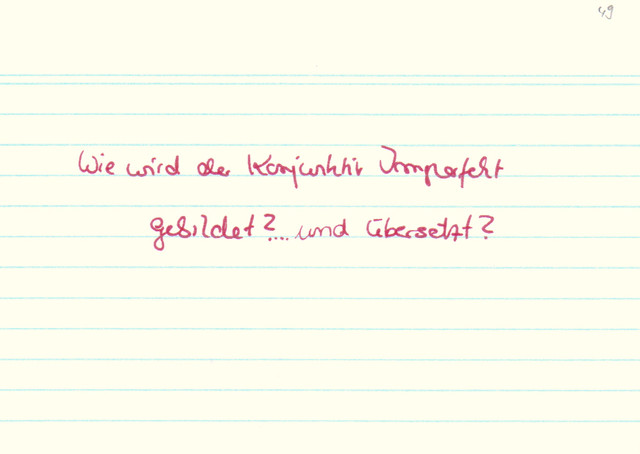 49
Wie wird der Konjunktiv Imperfekt
gebildet?... und übersetzt?